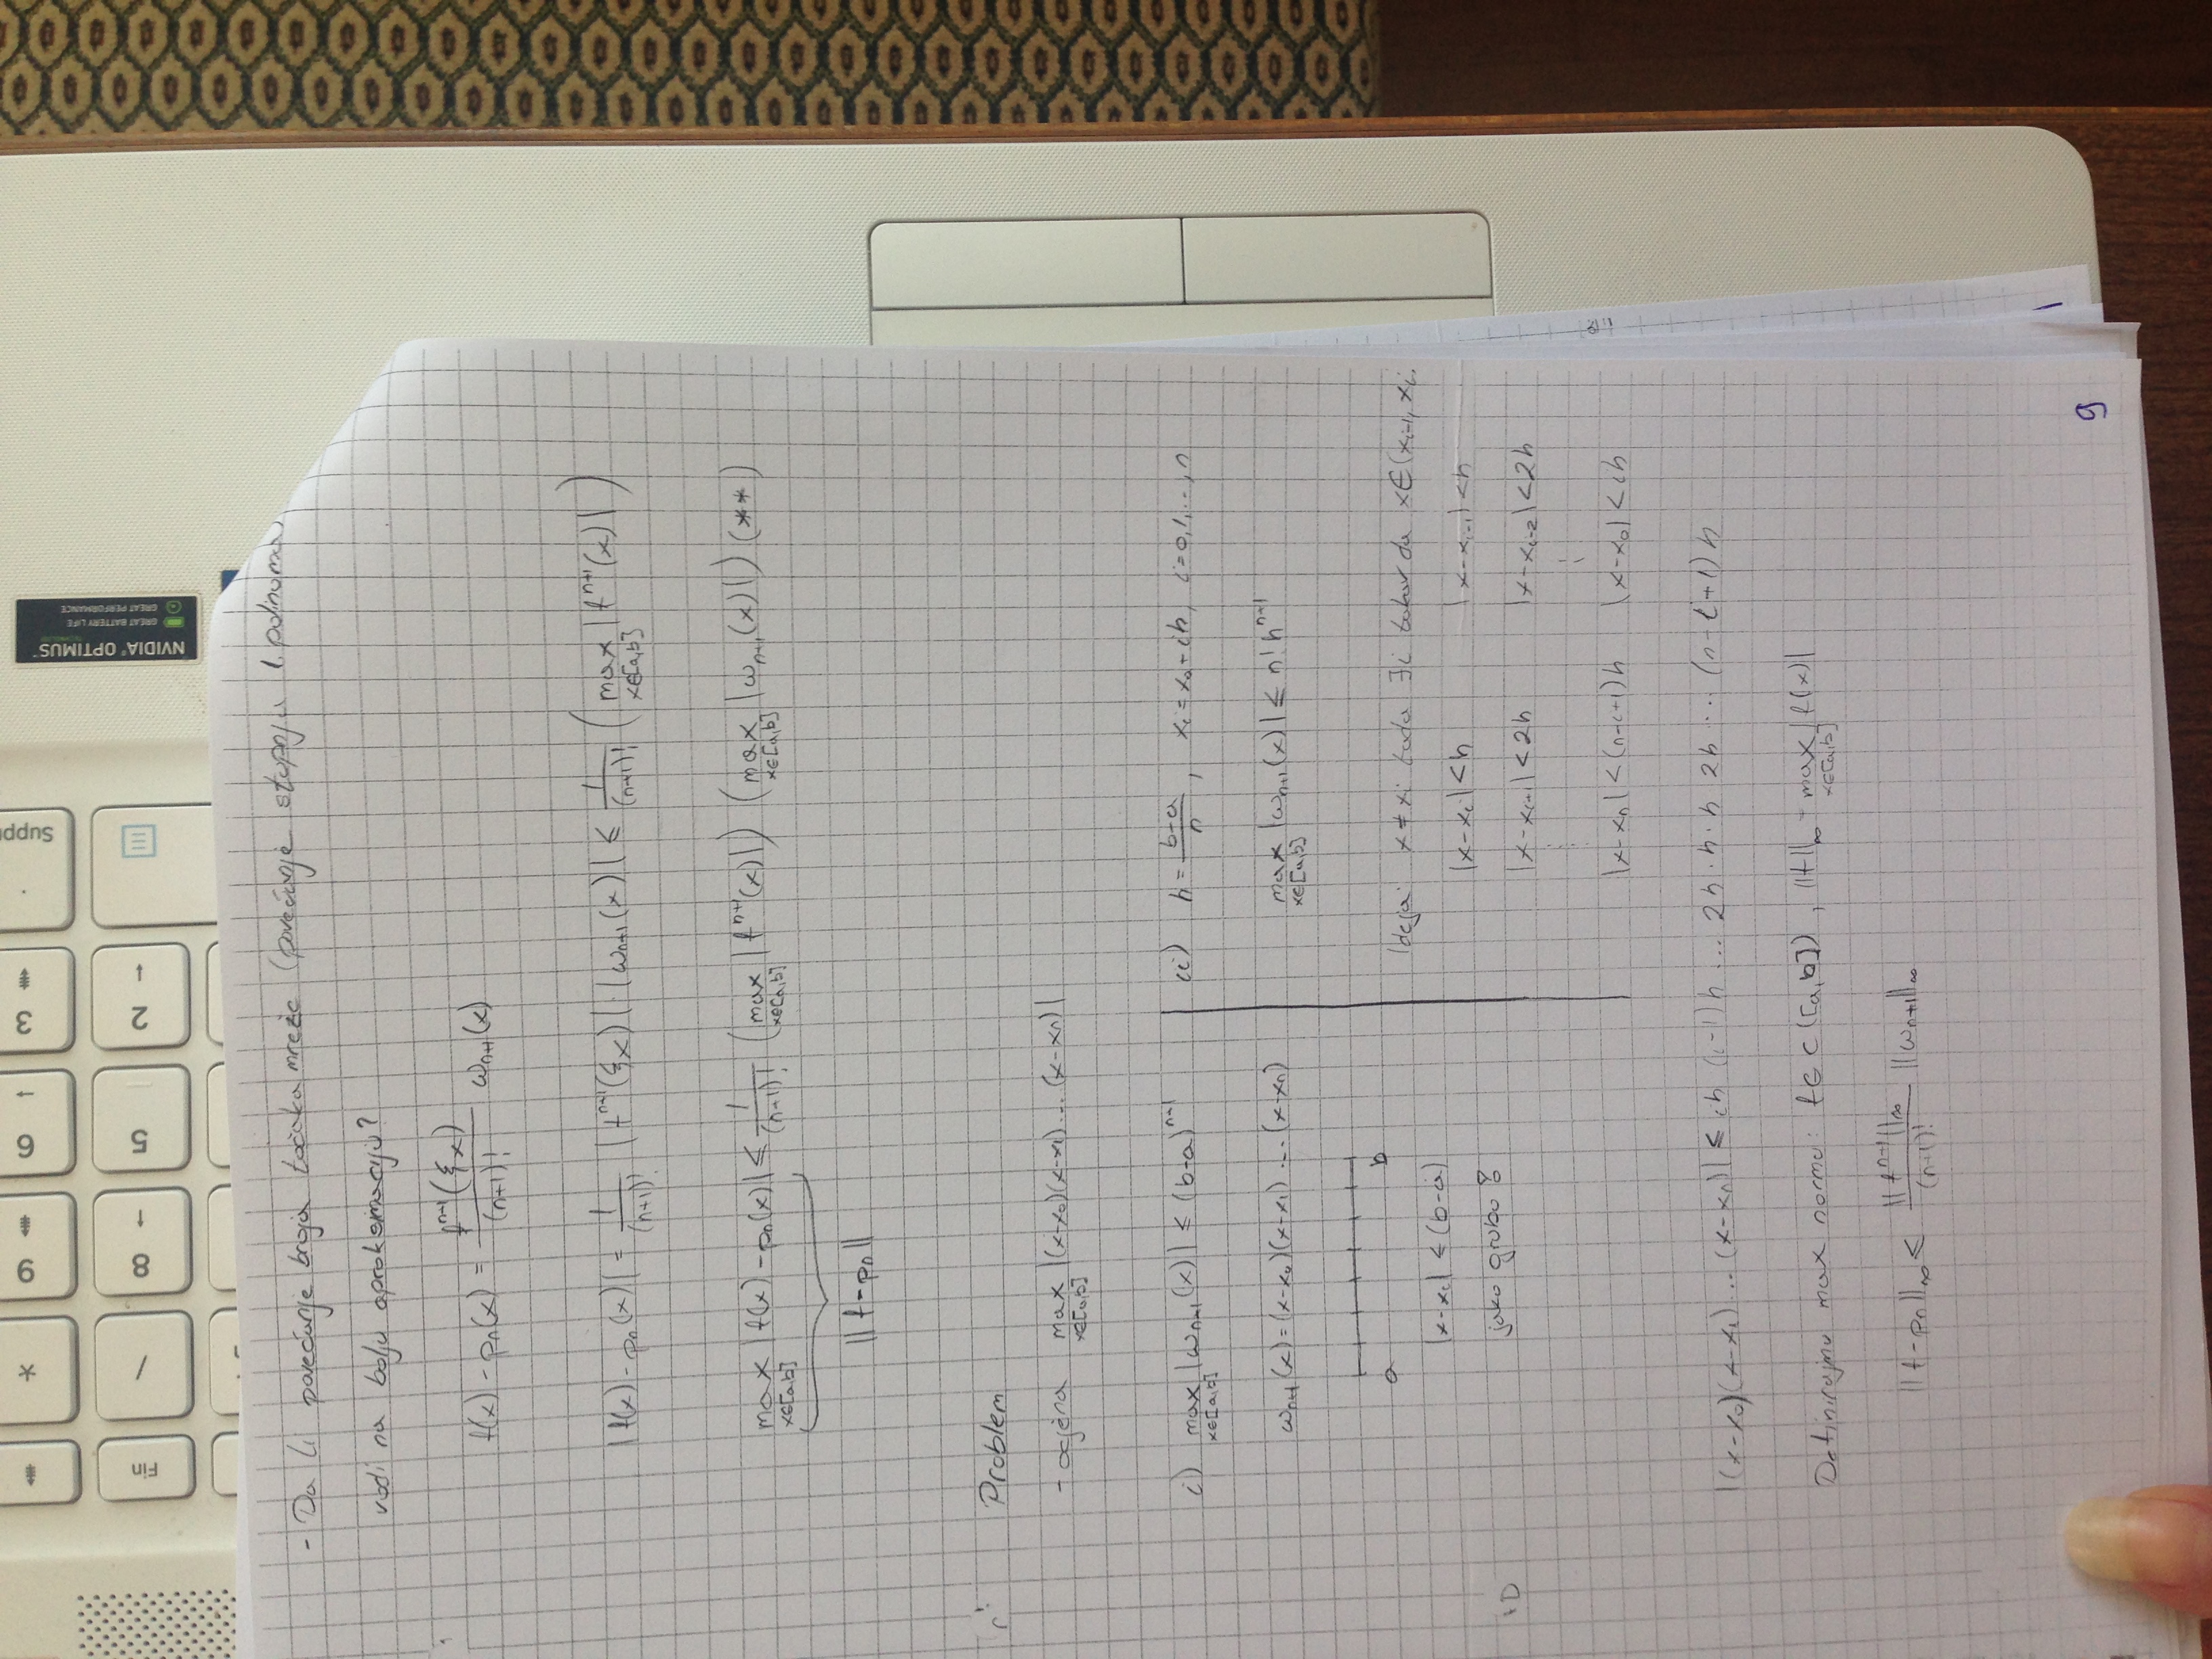 *
9
6
→
3
.
Suppr
Fin
/
8
↑
5
2
↓
NVIDIA® OPTIMUS™
GREAT BATTERY LIFE
GREAT PERFORMANCE
- Da li povećanje broja točaka mreže (povećanje stupnja I. polinoma)
vodi na bolju aproksimaciju?
f(x) - pₙ(x) = fⁿ⁺¹(ξx) / (n+1)! ωₙ₊₁(x)
|f(x) - pₙ(x)| = 1/(n+1)! |fⁿ⁺¹(ξx)| |ωₙ₊₁(x)| ≤ 1/(n+1)! (max x∈[a,b] |fⁿ⁺¹(x)|)
max x∈[a,b] |f(x) - pₙ(x)| ≤ 1/(n+1)! (max x∈[a,b] |fⁿ⁺¹(x)|) (max x∈[a,b] |ωₙ₊₁(x)|) (**)
||f - pₙ||
Problem
- ocjena max x∈[a,b] |(x-x₀)(x-x₁)...(x-xₙ)|
i) max x∈[a,b] |ωₙ₊₁(x)| ≤ (b-a)ⁿ⁺¹
ωₙ₊₁(x) = (x-x₀)(x-x₁) ... (x-xₙ)
a b
|x-xᵢ| ≤ (b-a)
jako grubo!
ii) h = (b-a)/n, xᵢ = x₀ + ih, i=0,1,...,n
max x∈[a,b] |ωₙ₊₁(x)| ≤ n! hⁿ⁺¹
Ideja: x ≠ xᵢ tada ∃i takav da x∈(xᵢ₋₁, xᵢ
|x-xᵢ| < h |x-xᵢ₋₁| < h
|x-xᵢ₊₁| < 2h |x-xᵢ₋₂| < 2h
|x-xₙ| < (n-i+1)h |x-x₀| < ih
|(x-x₀)(x-x₁)...(x-xₙ)| ≤ ih (i-1)h ... 2h · h · h 2h ... (n-i+1)h
Definirajmo max normu: f∈C([a,b]), ||f||∞ = max x∈[a,b] |f(x)|
||f - pₙ||∞ ≤ ||fⁿ⁺¹||∞ / (n+1)! ||ωₙ₊₁||∞
9